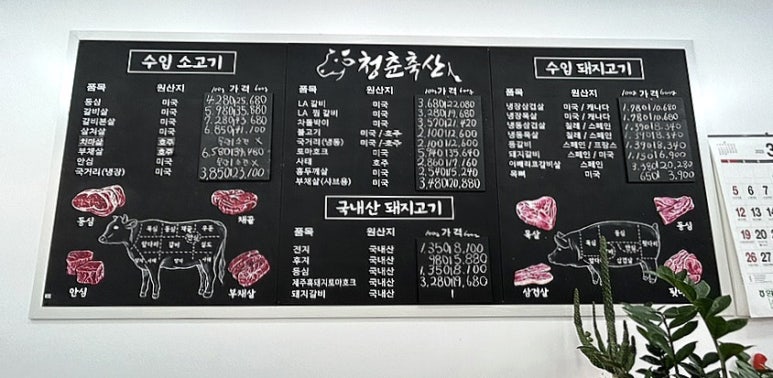 수입 소고기
품목 원산지 100g 가격 600g
등심 미국 4,280 25,680
갈비살 미국 5,980 35,880
갈비본살 미국 7,280 43,680
살치살 미국 6,850 41,100
치마살 호주
부채살 호주 6,580 39,480
안심 미국
국거리(냉장) 미국 3,850 23,100
등심
채끝
안심
부채살
청춘축산
품목 원산지 100g 가격 600g
LA 갈비 미국 3,680 22,080
LA 찜 갈비 미국 3,280 19,680
차돌박이 미국 3,570 21,420
불고기 미국 / 호주 2,100 12,600
국거리(냉동) 미국 / 호주 2,100 12,600
토마호크 미국 5,940 35,640
사태 호주 2,860 17,160
홍두깨살 미국 2,540 15,240
부채살(샤브용) 미국 3,480 20,880
국내산 돼지고기
품목 원산지 100g 가격 600g
전지 국내산 1,350 8,100
후지 국내산 980 5,880
등심 국내산 1,350 8,100
제주흑돼지토마호크 국내산 3,280 19,680
돼지갈비 국내산
수입 돼지고기
품목 원산지 100g 가격 600g
냉장삼겹살 미국 / 캐나다 1,780 10,680
냉장목살 미국 / 캐나다 1,780 10,680
냉동삼겹살 칠레 / 스페인 1,390 8,340
냉동목살 칠레 / 스페인 1,390 8,340
등갈비 스페인 / 프랑스 1,390 8,340
돼지갈비 스페인 / 미국 1,150 6,900
이베리코갈비살 스페인 3,380 20,280
목뼈 미국 650 3,900
목살
등심
삼겹살
3
5 6 7
12 13 14
19 20 21
26 27 28